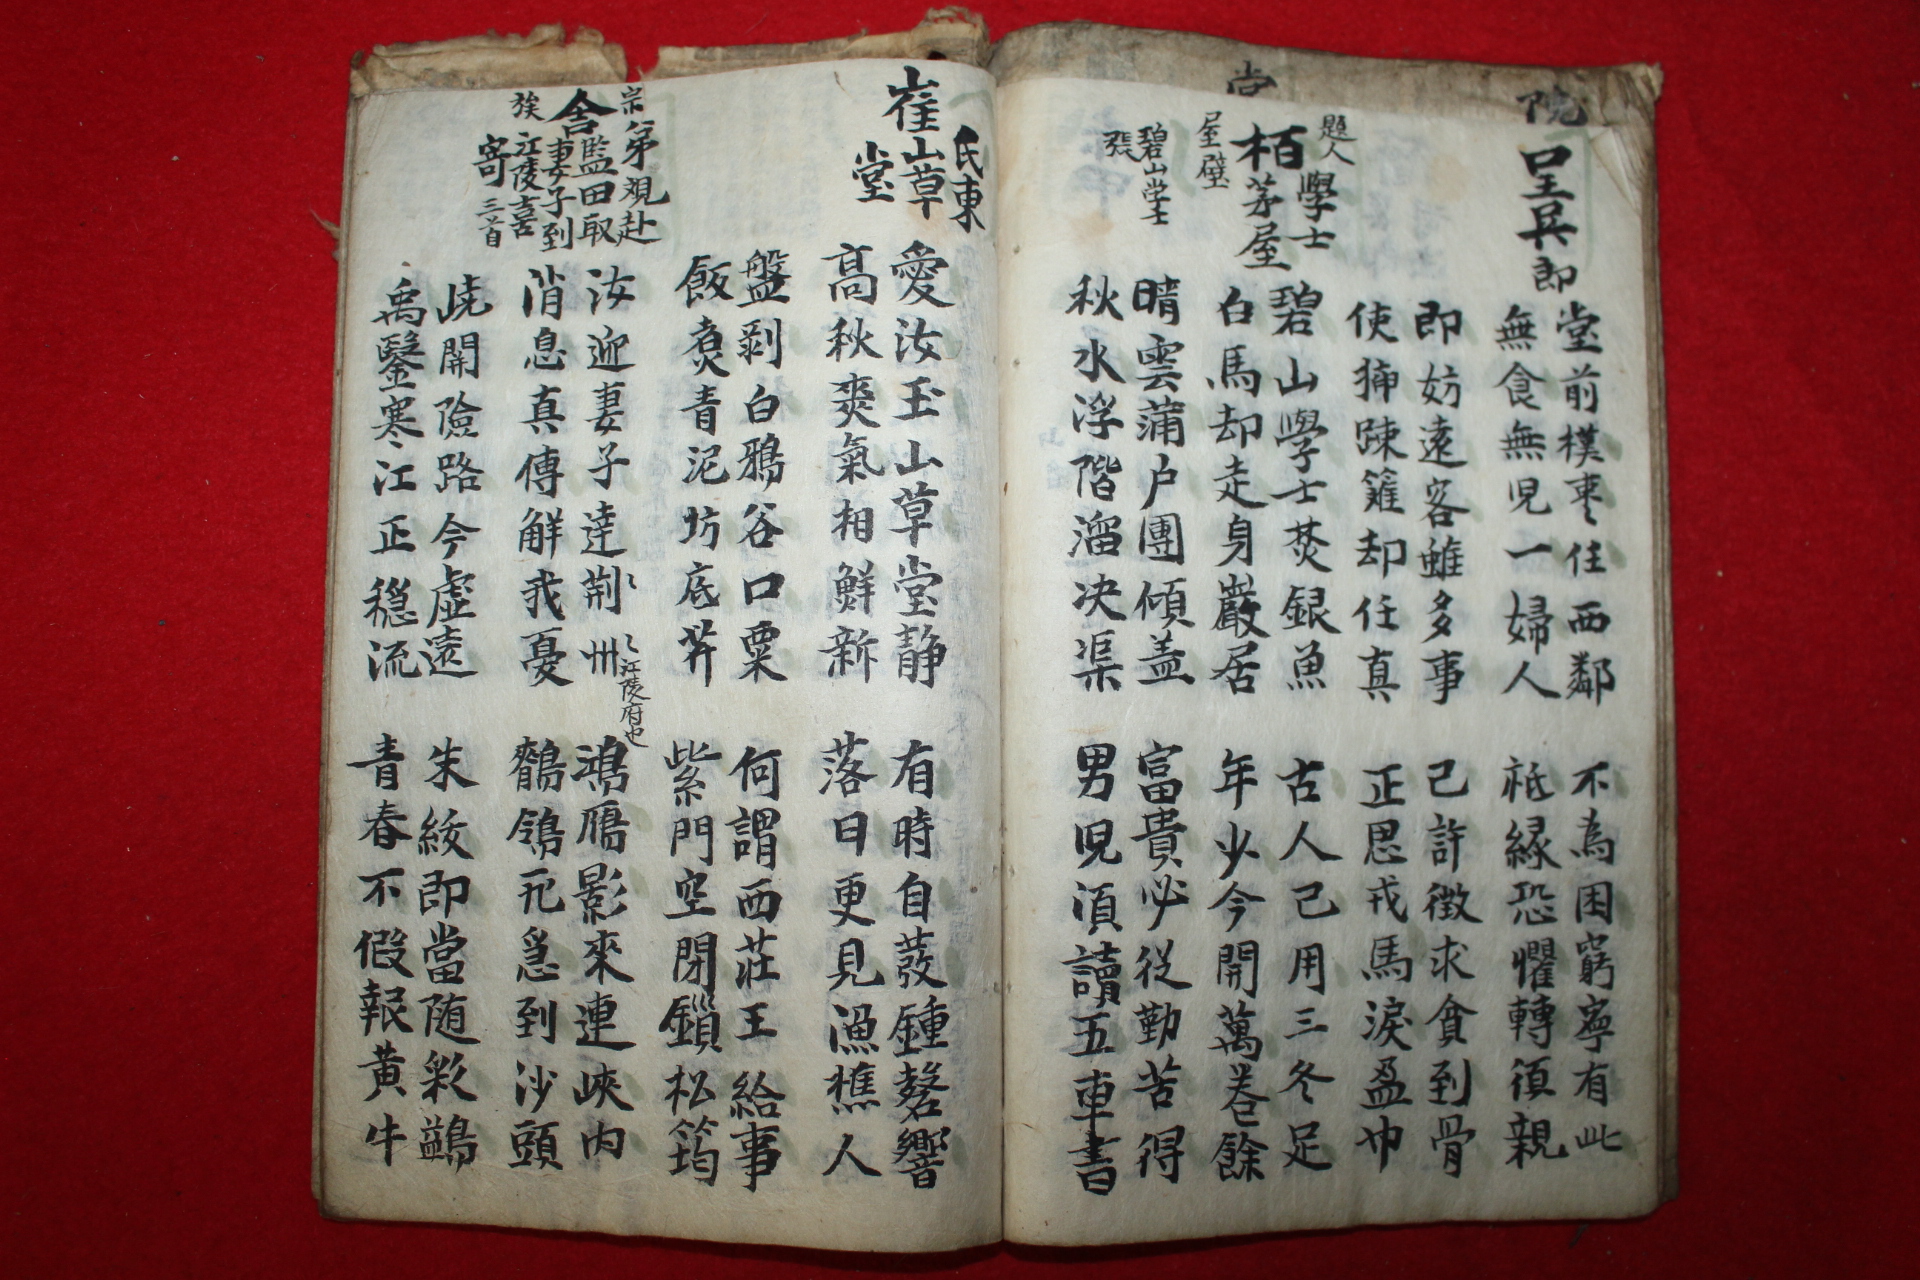 堂
院
呈吳郎
堂前樸棗任西鄰
不為困窮寧有此
無食無兒一婦人
祗緣恐懼轉須親
即妨遠客雖多事
已許徵求貧到骨
使揷踈籬却任真
正思戎馬淚盈巾
題人
學士
栢茅屋
屋壁
碧山學士
碧山學士焚銀魚
古人已用三冬足
白馬却走身巖居
年少今開萬卷餘
晴雲蒲户團傾盖
富貴必從勤苦得
秋水浮階溜决渠
男兒須讀五車書
氏東
崔山草
堂
愛汝玉山草堂静
有時自蕟鍾磬響
髙秋爽氣相鮮新
落日更見漁樵人
盤剥白鴉谷口粟
何謂西莊王給事
飯煑青泥坊底芹
紫門空閉鎻松筠
宗弟覌赴
監田取
舎妻子到
族江陵喜
寄三首
汝迎妻子逹荆州
江陵府也
鴻鴈影來連峽内
消息真傳觧我憂
鶺鴒飛急到沙頭
嶢開險路今虛遠
朱紱即當随彩鷁
禹鑿寒江正穏流
青春不假報黄牛